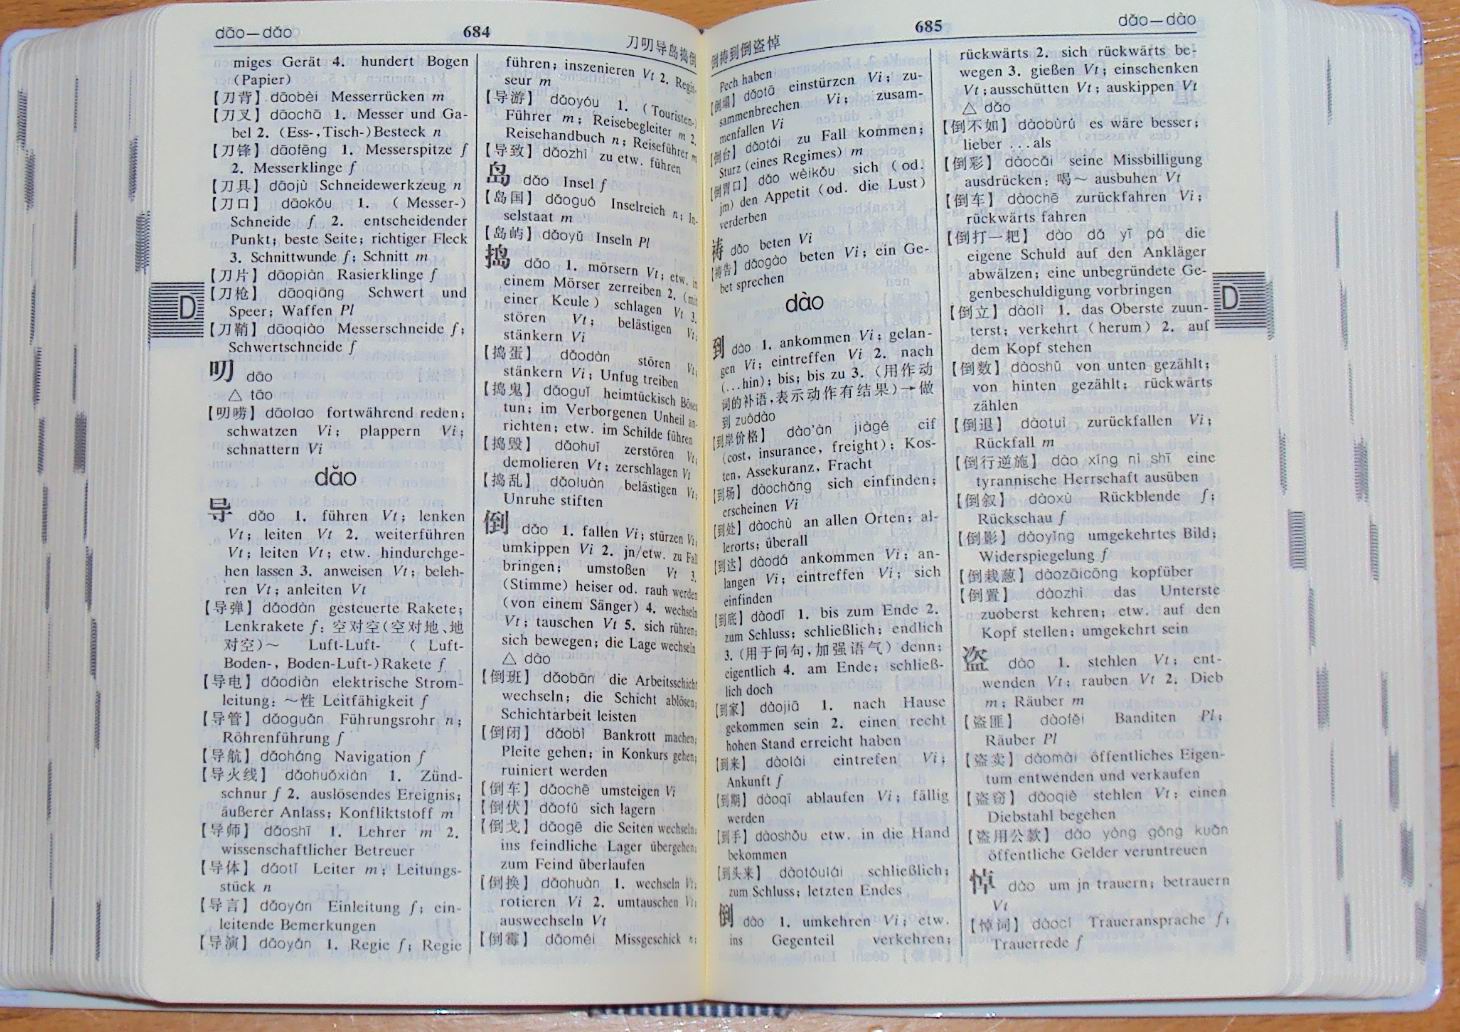 dāo—dǎo
684
刀叨导岛捣倒
miges Gerät 4. hundert Bogen
(Papier)
【刀背】 dāobèi Messerrücken m
【刀叉】 dāochā 1. Messer und Ga-
bel 2. (Ess-,Tisch-)Besteck n
【刀锋】 dāofēng 1. Messerspitze f
2. Messerklinge f
【刀具】 dāojù Schneidewerkzeug n
【刀口】 dāokǒu 1. (Messer-)
Schneide f 2. entscheidender
Punkt; beste Seite; richtiger Fleck
3. Schnittwunde f; Schnitt m
【刀片】 dāopiàn Rasierklinge f
【刀枪】 dāoqiāng Schwert und
Speer; Waffen Pl
【刀鞘】 dāoqiào Messerschneide f;
Schwertschneide f
叨 dāo
△ tāo
【叨唠】 dāolao fortwährend reden;
schwatzen Vi; plappern Vi;
schnattern Vi
dǎo
导 dǎo 1. führen Vt; lenken
Vt; leiten Vt 2. weiterführen
Vt; leiten Vt; etw. hindurchge-
hen lassen 3. anweisen Vt; beleh-
ren Vt; anleiten Vt
【导弹】 dǎodàn gesteuerte Rakete;
Lenkrakete f; 空对空(空对地、地
对空)～ Luft-Luft- ( Luft-
Boden-, Boden-Luft-)Rakete f
【导电】 dǎodiàn elektrische Strom-
leitung; ～性 Leitfähigkeit f
【导管】 dǎoguǎn Führungsrohr n;
Röhrenführung f
【导航】 dǎoháng Navigation f
【导火线】 dǎohuǒxiàn 1. Zünd-
schnur f 2. auslösendes Ereignis;
äußerer Anlass; Konfliktstoff m
【导师】 dǎoshī 1. Lehrer m 2.
wissenschaftlicher Betreuer
【导体】 dǎotǐ Leiter m; Leitungs-
stück n
【导言】 dǎoyán Einleitung f; ein-
leitende Bemerkungen
【导演】 dǎoyǎn 1. Regie f; Regie
führen; inszenieren Vt 2. Regis-
seur m
【导游】 dǎoyóu 1. (Touristen-)
Führer m; Reisebegleiter m 2.
Reisehandbuch n; Reiseführer m
【导致】 dǎozhì zu etw. führen
岛 dǎo Insel f
【岛国】 dǎoguó Inselreich n; In-
selstaat m
【岛屿】 dǎoyǔ Inseln Pl
捣 dǎo 1. mörsern Vt; etw. in
einem Mörser zerreiben 2. (mit
einer Keule) schlagen Vt 3.
stören Vt; belästigen Vt;
stänkern Vi
【捣蛋】 dǎodàn stören Vt;
stänkern Vi; Unfug treiben
【捣鬼】 dǎoguǐ heimtückisch Böses
tun; im Verborgenen Unheil an-
richten; etw. im Schilde führen
【捣毁】 dǎohuǐ zerstören Vt;
demolieren Vt; zerschlagen Vt
【捣乱】 dǎoluàn belästigen Vt;
Unruhe stiften
倒 dǎo 1. fallen Vi; stürzen Vi;
umkippen Vi 2. jn/etw. zu Fall
bringen; umstoßen Vt 3.
(Stimme) heiser od. rauh werden
(von einem Sänger) 4. wechseln
Vt; tauschen Vt 5. sich rühren;
sich bewegen; die Lage wechseln
△ dào
【倒班】 dǎobān die Arbeitsschicht
wechseln; die Schicht ablösen;
Schichtarbeit leisten
【倒闭】 dǎobì Bankrott machen;
Pleite gehen; in Konkurs gehen;
ruiniert werden
【倒车】 dǎochē umsteigen Vi
【倒伏】 dǎofú sich lagern
【倒戈】 dǎogē die Seiten wechseln;
ins feindliche Lager übergehen;
zum Feind überlaufen
【倒换】 dǎohuàn 1. wechseln Vt;
rotieren Vi 2. umtauschen Vt;
auswechseln Vt
【倒霉】 dǎoméi Missgeschick n;
倒祷到倒盗悼
685
dǎo—dào
Pech haben
【倒塌】 dǎotā einstürzen Vi; zu-
sammenbrechen Vi; zusam-
menfallen Vi
【倒台】 dǎotái zu Fall kommen;
Sturz (eines Regimes) m
【倒胃口】 dǎo wèikǒu sich (od.
jm) den Appetit (od. die Lust)
verderben
祷 dǎo beten Vi
【祷告】 dǎogào beten Vi; ein Ge-
bet sprechen
dào
到 dào 1. ankommen Vi; gelan-
gen Vi; eintreffen Vi 2. nach
(…hin); bis; bis zu 3. (用作动
词的补语,表示动作有结果)→做
到 zuòdào
【到岸价格】 dào'àn jiàgé cif
(cost, insurance, freight); Kos-
ten, Assekuranz, Fracht
【到场】 dàochǎng sich einfinden;
erscheinen Vi
【到处】 dàochù an allen Orten; al-
lerorts; überall
【到达】 dàodá ankommen Vi; an-
langen Vi; eintreffen Vi; sich
einfinden
【到底】 dàodǐ 1. bis zum Ende 2.
zum Schluss; schließlich; endlich
3. (用于问句,加强语气) denn;
eigentlich 4. am Ende; schließ-
lich doch
【到家】 dàojiā 1. nach Hause
gekommen sein 2. einen recht
hohen Stand erreicht haben
【到来】 dàolái eintrefen Vi;
Ankunft f
【到期】 dàoqī ablaufen Vi; fällig
werden
【到手】 dàoshǒu etw. in die Hand
bekommen
【到头来】 dàotóulái schließlich;
zum Schluss; letzten Endes
倒 dào 1. umkehren Vi; etw.
ins Gegenteil verkehren;
rückwärts 2. sich rückwärts be-
wegen 3. gießen Vt; einschenken
Vt; ausschütten Vt; auskippen Vt
△ dǎo
【倒不如】 dàobùrú es wäre besser;
lieber …als
【倒彩】 dàocǎi seine Missbilligung
ausdrücken; 喝～ ausbuhen Vt
【倒车】 dàochē zurückfahren Vi;
rückwärts fahren
【倒打一耙】 dào dǎ yī pá die
eigene Schuld auf den Ankläger
abwälzen; eine unbegründete Ge-
genbeschuldigung vorbringen
【倒立】 dàolì 1. das Oberste zuun-
terst; verkehrt (herum) 2. auf
dem Kopf stehen
【倒数】 dàoshǔ von unten gezählt;
von hinten gezählt; rückwärts
zählen
【倒退】 dàotuì zurückfallen Vi;
Rückfall m
【倒行逆施】 dào xíng nì shī eine
tyrannische Herrschaft ausüben
【倒叙】 dàoxù Rückblende f;
Rückschau f
【倒影】 dàoyǐng umgekehrtes Bild;
Widerspiegelung f
【倒栽葱】 dàozāicōng kopfüber
【倒置】 dàozhì das Unterste
zuoberst kehren; etw. auf den
Kopf stellen; umgekehrt sein
盗 dào 1. stehlen Vt; ent-
wenden Vt; rauben Vt 2. Dieb
m; Räuber m
【盗匪】 dàofěi Banditen Pl;
Räuber Pl
【盗卖】 dàomài öffentliches Eigen-
tum entwenden und verkaufen
【盗窃】 dàoqiè stehlen Vt; einen
Diebstahl begehen
【盗用公款】 dào yòng gōng kuǎn
öffentliche Gelder veruntreuen
悼 dào um jn trauern; betrauern
Vt
【悼词】 dàocí Traueransprache f;
Trauerrede f
D
D